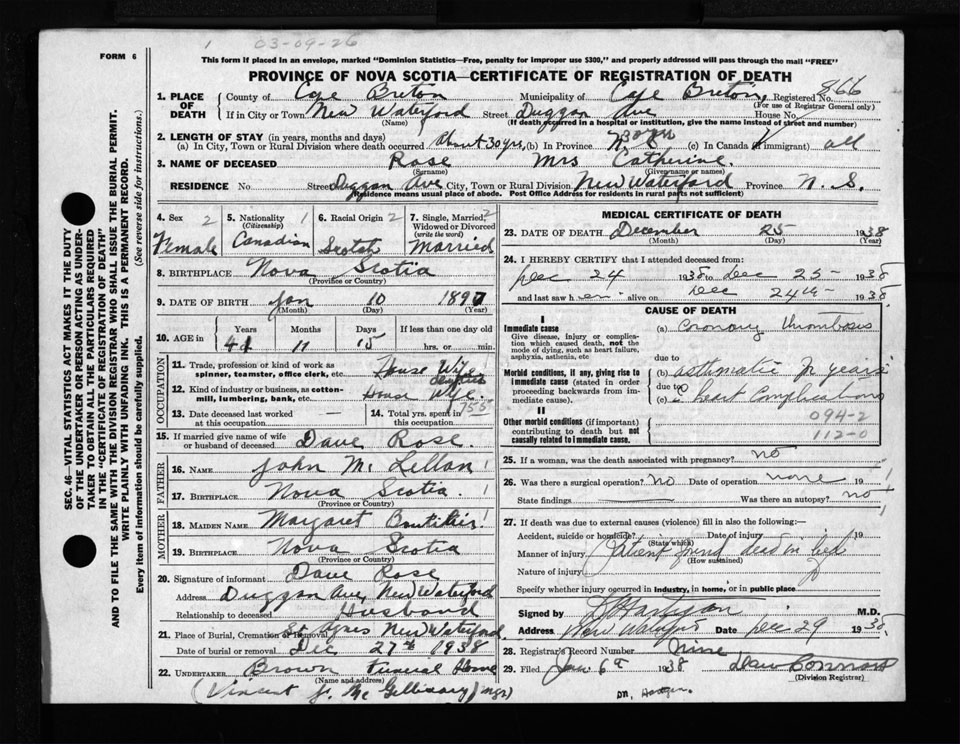 1 03-09-26
FORM 6
This form if placed in an envelope, marked "Dominion Statistics—Free, penalty for improper use $300," and properly addressed will pass through the mail "FREE"
PROVINCE OF NOVA SCOTIA—CERTIFICATE OF REGISTRATION OF DEATH
1. PLACE OF DEATH County of Cape Breton Municipality of Cape Breton, Registered No. 866
(For use of Registrar General only)
If in City or Town New Waterford Street Duggan Ave House No.
(Name) (If death occurred in a hospital or institution, give the name instead of street and number)
2. LENGTH OF STAY (in years, months and days)
(a) In City, Town or Rural Division where death occurred About 30 yrs, (b) In Province N.S. (c) In Canada (if immigrant) all
3. NAME OF DECEASED Rose Mrs Catherine.
(Surname) (Given name or names)
RESIDENCE No. Street Duggan Ave City, Town or Rural Division New Waterford Province N. S.
(Residence means usual place of abode. Post Office Address for residents in rural parts not sufficient)
4. Sex 2 Female
5. Nationality 1 (Citizenship) Canadian
6. Racial Origin 2 Scotch
7. Single, Married, Widowed or Divorced (write the word) 2 Married
8. BIRTHPLACE Nova Scotia
(Province or Country)
9. DATE OF BIRTH Jan 10 1897
(Month) (Day) (Year)
10. AGE in Years Months Days If less than one day old
41 11 15 hrs. or min.
OCCUPATION
11. Trade, profession or kind of work as spinner, teamster, office clerk, etc. House Wife
12. Kind of industry or business, as cotton-mill, lumbering, bank, etc. House Wife.
13. Date deceased last worked at this occupation —
14. Total yrs. spent in this occupation
15. If married give name of wife or husband of deceased Dave Rose.
FATHER
16. NAME John Mc Lellan
17. BIRTHPLACE Nova Scotia.
(Province or Country)
MOTHER
18. MAIDEN NAME Margaret Boutilier
19. BIRTHPLACE Nova Scotia
(Province or Country)
20. Signature of informant Dave Rose
Address Duggan Ave, New Waterford
Relationship to deceased Husband
21. Place of Burial, Cremation or Removal St Agnes New Waterford
Date of burial or removal Dec 27th 1938
22. UNDERTAKER Brown Funeral Home
(Name and address)
(Vincent J. Mc Gillivary) mgr)
MEDICAL CERTIFICATE OF DEATH
23. DATE OF DEATH December 25 1938
(Month) (Day) (Year)
24. I HEREBY CERTIFY that I attended deceased from:
Dec 24 1938 to Dec 25 - 1938
and last saw h er alive on Dec 24th - 1938.
CAUSE OF DEATH
I
Immediate cause
Give disease, injury or complication which caused death, not the mode of dying, such as heart failure, asphyxia, asthenia, etc
(a) Coronary thrombosis
due to
Morbid conditions, if any, giving rise to immediate cause (stated in order proceeding backwards from immediate cause).
(b) asthmatic for years
due to
(c) heart complications
II
Other morbid conditions (if important) contributing to death but not causally related to immediate cause.
094-2
112-0
25. If a woman, was the death associated with pregnancy? no
26. Was there a surgical operation? no Date of operation none 19
State findings Was there an autopsy? no
27. If death was due to external causes (violence) fill in also the following:—
Accident, suicide or homicide? Date of injury 19
(State which)
Manner of injury (Patient found dead in bed
(How sustained)
Nature of injury
Specify whether injury occurred in industry, in home, or in public place
Signed by M.D.
Address New Waterford Date Dec 29 1938.
28. Registrar's Record Number Nine
29. Filed Jan 6th 1938
(Division Registrar)
SEC. 46—VITAL STATISTICS ACT MAKES IT THE DUTY OF THE UNDERTAKER OR PERSON ACTING AS UNDERTAKER TO OBTAIN ALL THE PARTICULARS REQUIRED IN THE "CERTIFICATE OF REGISTRATION OF DEATH" AND TO FILE THE SAME WITH THE DIVISION REGISTRAR WHO SHALL ISSUE THE BURIAL PERMIT.
WRITE PLAINLY WITH UNFADING INK. THIS IS A PERMANENT RECORD.
Every item of information should be carefully supplied. (See reverse side for instructions.)